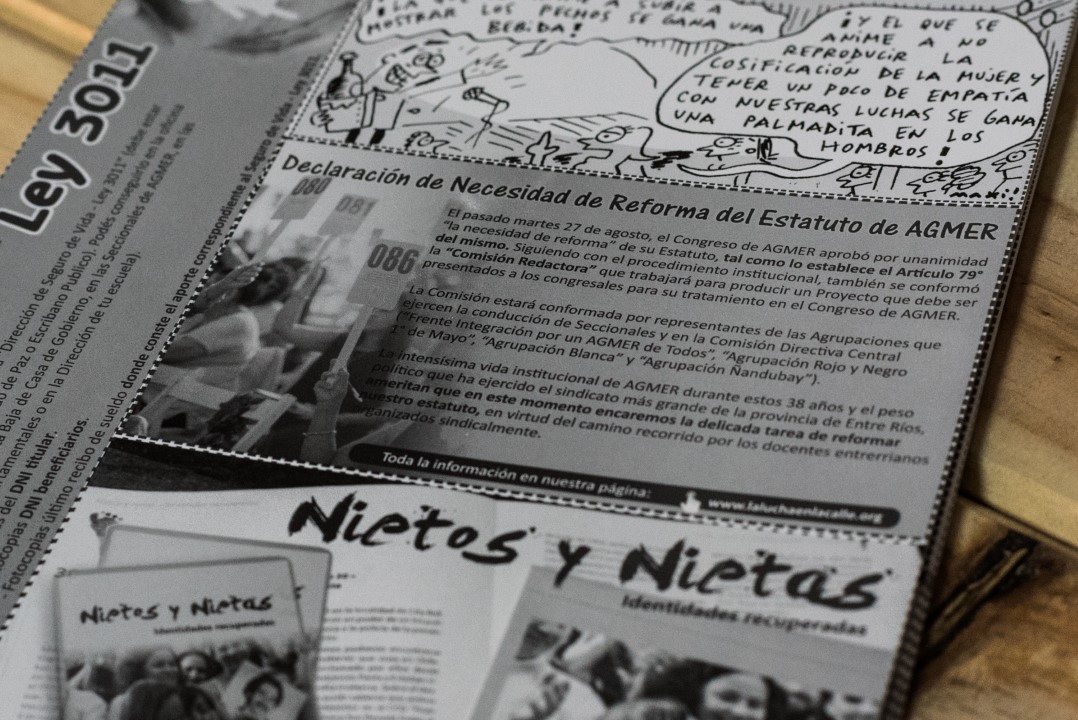 MOSTRAR LOS PECHOS SE GANA UNA
BEBIDA!
¡Y EL QUE SE
ANIME A NO
REPRODUCIR LA
COSIFICACIÓN DE LA MUJER Y
TENER UN POCO DE EMPATÍA
CON NUESTRAS LUCHAS SE GANA
UNA PALMADITA EN LOS
HOMBROS!
Ley 3011
"Dirección de Seguro de Vida - Ley 3011" (debe estar
de Paz o Escribano Público). Podés conseguirlo en la oficina
baja de Casa de Gobierno, en las Seccionales de AGMER, en las
o en la Dirección de tu escuela).
del DNI titular.
DNI beneficiarios.
- Fotocopias último recibo de sueldo donde conste el aporte correspondiente al Seguro de Vida - Ley
Declaración de Necesidad de Reforma del Estatuto de AGMER
080
081
086
El pasado martes 27 de agosto, el Congreso de AGMER aprobó por unanimidad
"la necesidad de reforma" de su Estatuto, tal como lo establece el Artículo 79°
del mismo. Siguiendo con el procedimiento institucional, también se conformó
la "Comisión Redactora" que trabajará para producir un Proyecto que debe ser
presentados a los congresales para su tratamiento en el Congreso de AGMER.
La Comisión estará conformada por representantes de las Agrupaciones que
ejercen la conducción de Seccionales y en la Comisión Directiva Central
("Frente Integración por un AGMER de Todos", "Agrupación Rojo y Negro
1° de Mayo", "Agrupación Blanca" y "Agrupación Ñandubay").
La intensísima vida institucional de AGMER durante estos 38 años y el peso
político que ha ejercido el sindicato más grande de la provincia de Entre Ríos,
ameritan que en este momento encaremos la delicada tarea de reformar
nuestro estatuto, en virtud del camino recorrido por los docentes entrerrianos
organizados sindicalmente.
Toda la información en nuestra página: www.laluchaenlacalle.org
Nietos y Nietas
Identidades recuperadas
Nietos y Nietas
Identidades recuperadas